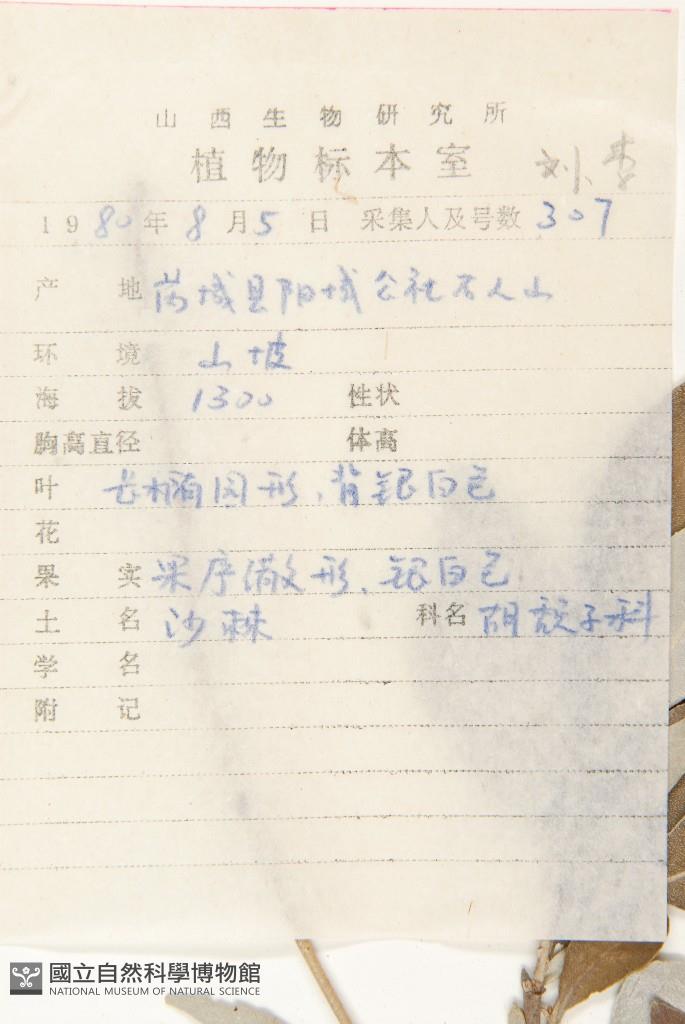 山西生物研究所
植物标本室 刘、李
1980年8月5日 采集人及号数 307
产地 芮城县阳城公社石人山
环境 山坡
海拔 1300 性状
胸高直径 体高
叶 长椭园形、背银白色
花
果实 果序散形、银白色
土名 沙棘 科名 胡颓子科
学名
附记
國立自然科學博物館
NATIONAL MUSEUM OF NATURAL SCIENCE